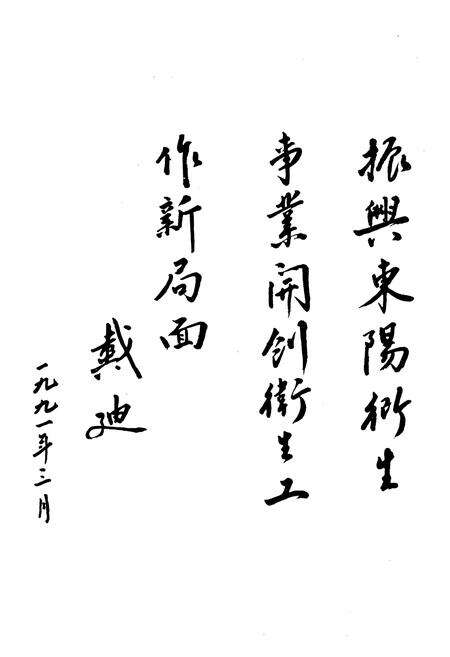 振興東陽衛生
事業開創衛生工
作新局面
戴迪
一九九一年三月